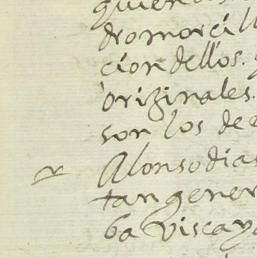 dromorcill
cion dellos.
originales.
son los de
Alonso dias
tan gener
ba viscay